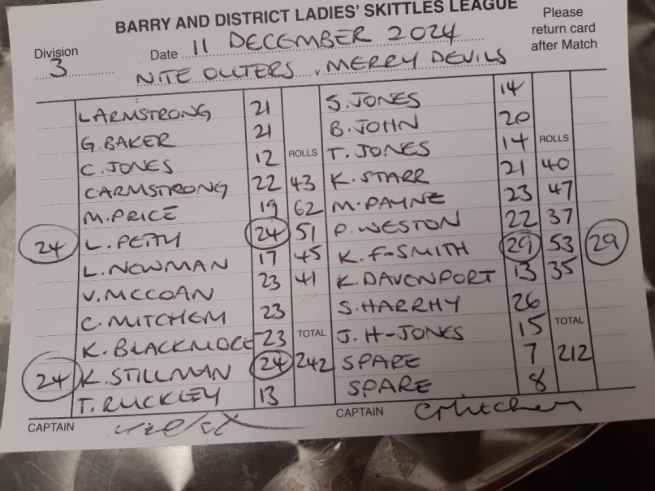 BARRY AND DISTRICT LADIES' SKITTLES LEAGUE
Please return card after Match
Division 3 Date 11 DECEMBER 2024
NITE OUTERS v MERRY DEVILS
L ARMSTRONG 21 S. JONES 14
G. BAKER 21 B. JOHN 20
C. JONES 12 ROLLS T. JONES 14 ROLLS
C ARMSTRONG 22 43 K. STARR 21 40
M. PRICE 19 62 M. PAYNE 23 47
24 L. PEITY 24 51 P. WESTON 22 37
L. NEWMAN 17 45 K. F-SMITH 29 53 29
V. MCCOAN 23 41 K. DAVENPORT 13 35
C. MITCHEM 23 S. HARRHY 26
K. BLACKMORE 23 TOTAL J. H-JONES 15 TOTAL
24 K. STILLMAN 24 242 SPARE 7 212
T. RUCKLEY 13 SPARE 8
CAPTAIN CAPTAIN